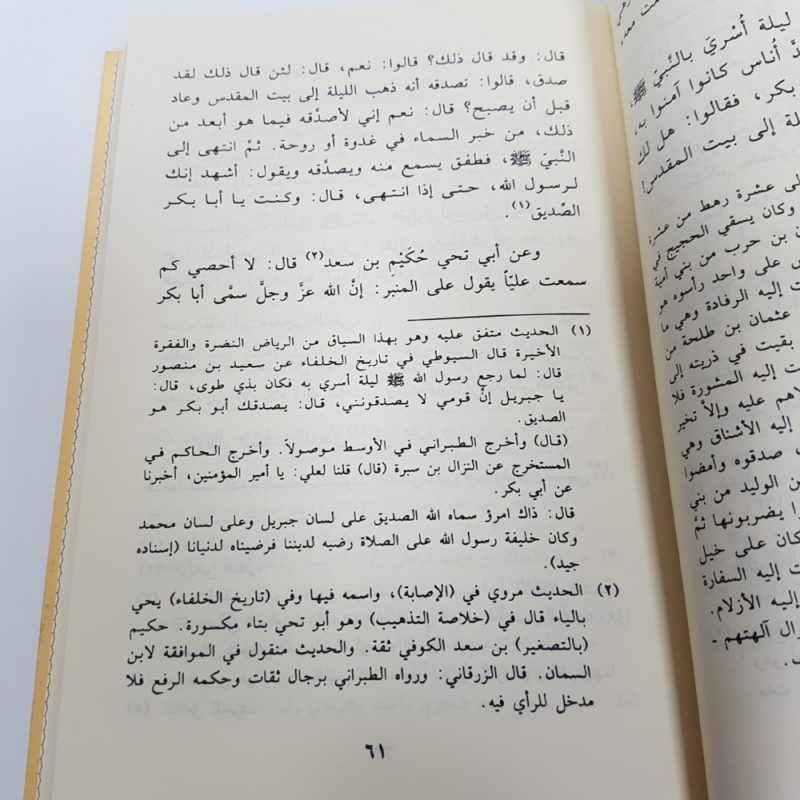 ليلة أُسْرِيَ بالنَّبيّ ﷺ،
أُناس كانوا آمنوا به.
بكر، فقالوا: هل لك
لة إلى بيت المقدس!
عشرة رهط من عشرة
وكان يسقي الحجيج في
بن حرب من بني أمية
على واحد رأسوه هو
ت إليه الرفادة وهي ما
عثمان بن طلحة من
بقيت في ذريته إلى
ت إليه المشورة فلا
لاهم عليه وإلاَّ تخير
إليه الأشناق وهي
صدقوه وأمضوا
ن الوليد من بني
ا يضربونها ثمَّ
كان على خيل
ت إليه السفارة
إليه الأزلام.
ال آلهتهم ـ
قال: وقد قال ذلك؟ قالوا: نعم، قال: لئن قال ذلك لقد
صدق، قالوا: تصدقه أنه ذهب الليلة إلى بيت المقدس وعاد
قبل أن يصبح؟ قال: نعم إني لأصدِّقه فيما هو أبعد من
ذلك، من خبر السماء في غدوة أو روحة. ثمَّ انتهى إلى
النَّبيّ ﷺ، فطفق يسمع منه ويصدِّقه ويقول: أشهد إنك
لرسول الله، حتى إذا انتهى، قال: وكنت يا أبا بكر
الصِّديق(١).
وعن أبي تحي حُكَيْمِ بن سعد(٢) قال: لا أحصي كم
سمعت عليّاً يقول على المنبر: إنَّ الله عزَّ وجلَّ سمَّى أبا بكر
(١) الحديث متفق عليه وهو بهذا السياق من الرياض النضرة والفقرة
الأخيرة قال السيوطي في تاريخ الخلفاء عن سعيد بن منصور
قال: لما رجع رسول الله ﷺ ليلة أسري به فكان بذي طوى، قال:
يا جبريل إنَّ قومي لا يصدقونني، قال: يصدقك أبو بكر هو
الصديق.
(قال) وأخرج الطبراني في الأوسط موصولاً. وأخرج الحاكم في
المستخرج عن النزال بن سبرة (قال) قلنا لعلي: يا أمير المؤمنين، أخبرنا
عن أبي بكر.
قال: ذاك امرؤ سماه الله الصديق على لسان جبريل وعلى لسان محمد
وكان خليفة رسول الله على الصلاة رضيه لديننا فرضيناه لدنيانا (إسناده
جيد).
(٢) الحديث مروي في (الإصابة)، واسمه فيها وفي (تاريخ الخلفاء) يحي
بالياء قال في (خلاصة التذهيب) وهو أبو تحي بتاء مكسورة. حكيم
(بالتصغير) بن سعد الكوفي ثقة. والحديث منقول في الموافقة لابن
السمان. قال الزرقاني: ورواه الطبراني برجال ثقات وحكمه الرفع فلا
مدخل للرأي فيه.
٦١